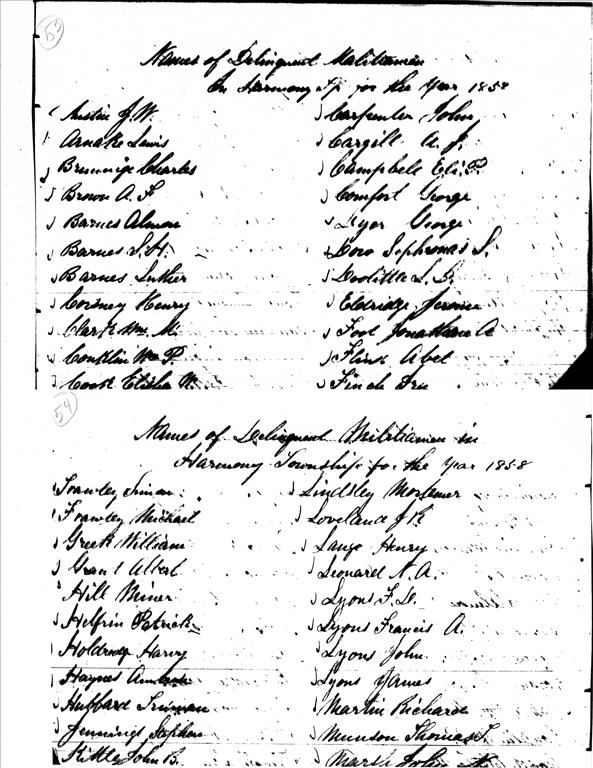 53
Names of Delinquent Malitiamen
In Harmony Tp for the Year 1858
Austin J. W.
Arnake Lewis
Brunnige Charles
Brown A. F.
Barnes Almon
Barnes S. H.
Barnes Luther
Henry
Clark Wm M.
Conklin Wm P.
Cook Elisha W.
Carpenter John
Cargill A. J.
Campbell Eli P.
Comfort George
Dyer George
Dow S.
Doolittle L. B.
Eldridge Jerome
Foot Jonathan A
Flink Abel
Finch Ira
54
Names of Delinquent Militiamen in
Harmony Township for the Year 1858
Frawley Simon
Frawley Michael
Greek William
Grant Albert
Hill Miner
Helfrin Patrick
Holdredge Harvy
Haynes
Hubbard Truman
Jennings Stephen
Kittle John B.
Lindsley Mortemer
Loveland J K
Lange Henry
Leonard N. A.
Lyons F. D.
Lyons Francis A.
Lyons John
Lyons James
Martin Richard
Munson Thomas F.
Marsh John